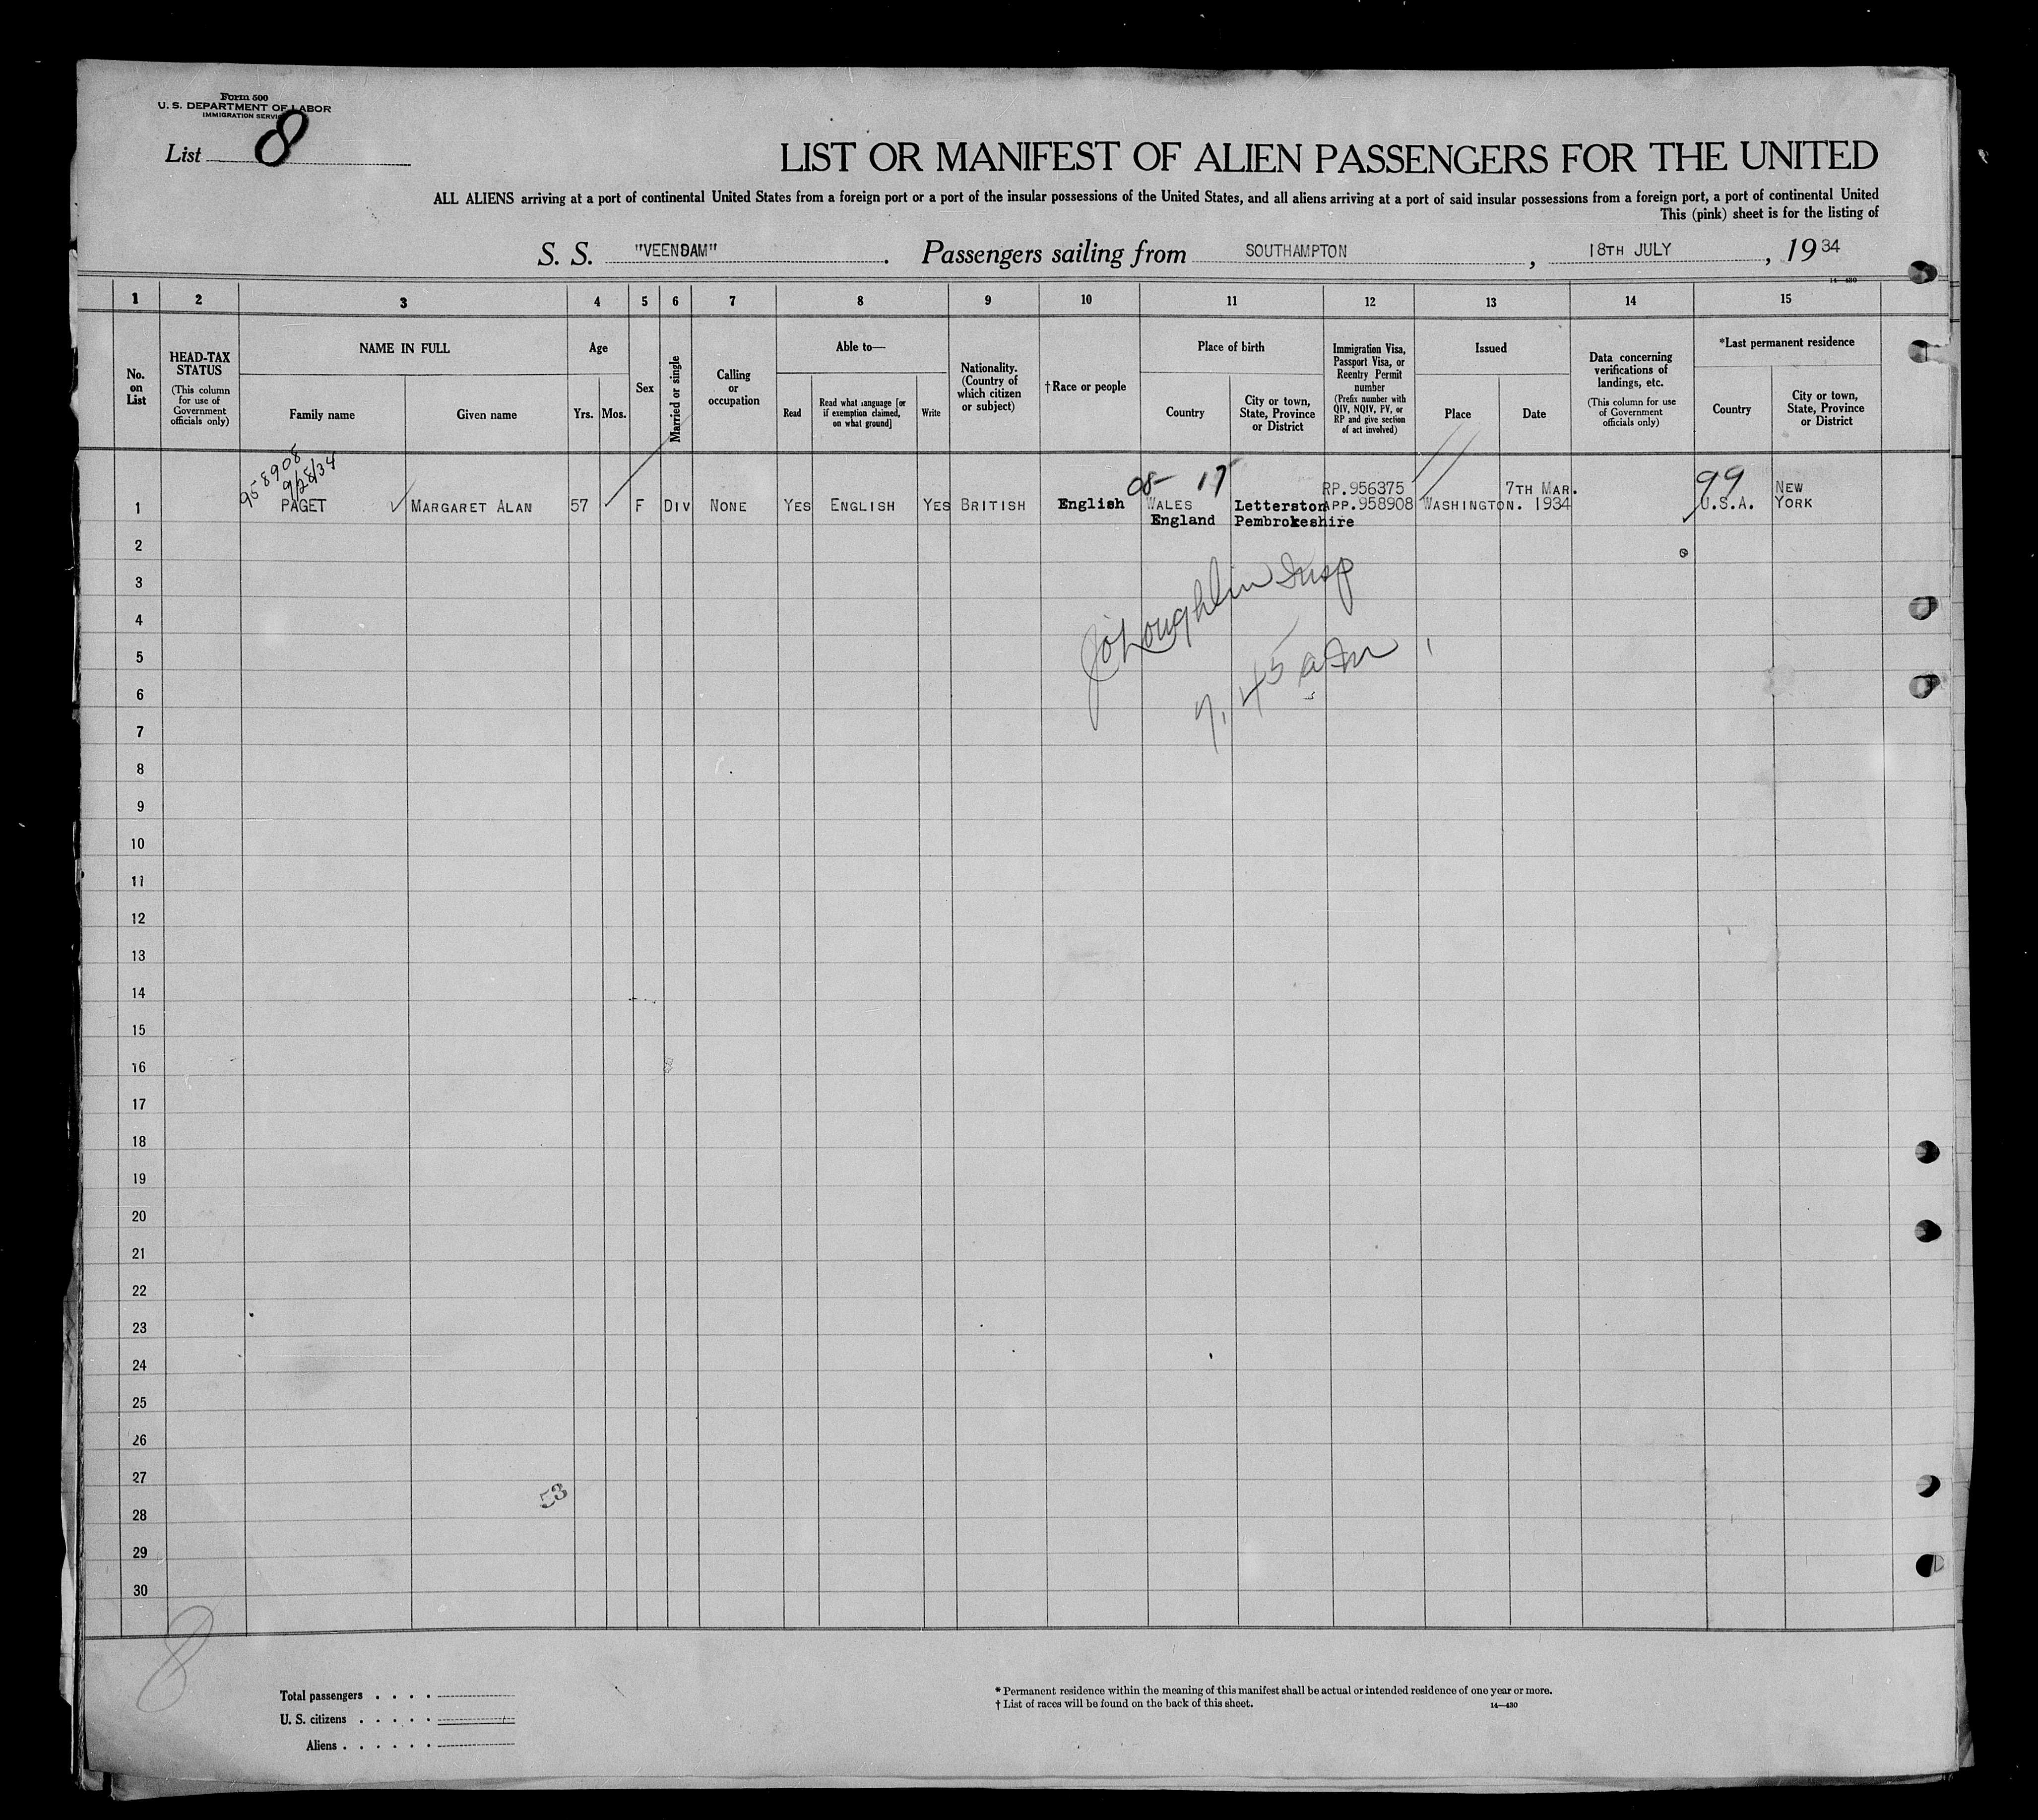 Form 500
U. S. DEPARTMENT OF LABOR
IMMIGRATION SERVICE
List 8
LIST OR MANIFEST OF ALIEN PASSENGERS FOR THE UNITED
ALL ALIENS arriving at a port of continental United States from a foreign port or a port of the insular possessions of the United States, and all aliens arriving at a port of said insular possessions from a foreign port, a port of continental United
This (pink) sheet is for the listing of
S. S. "VEENDAM". Passengers sailing from SOUTHAMPTON, 18TH JULY, 1934
14—430
1 2 3 4 5 6 7 8 9 10 11 12 13 14 15
No. on List
HEAD-TAX STATUS
(This column for use of Government officials only)
NAME IN FULL
Family name
Given name
Age
Yrs.
Mos.
Sex
Married or single
Calling or occupation
Able to—
Read
Read what language [or if exemption claimed, on what ground]
Write
Nationality. (Country of which citizen or subject)
†Race or people
Place of birth
Country
City or town, State, Province or District
Immigration Visa, Passport Visa, or Reentry Permit number
(Prefix number with QIV, NQIV, PV, or RP and give section of act involved)
Issued
Place
Date
Data concerning verifications of landings, etc.
(This column for use of Government officials only)
*Last permanent residence
Country
City or town, State, Province or District
958908
9/28/34
08- 17
99
RP.956375 7TH MAR. NEW
1 PAGET MARGARET ALAN 57 F DIV NONE YES ENGLISH YES BRITISH English WALES Letterston APP.958908 WASHINGTON. 1934 U.S.A. YORK
England Pembrokeshire
2
3
J O'Loughlin Insp
4
5
7.45 a m
6
7
8
9
10
11
12
13
14
15
16
17
18
19
20
21
22
23
24
25
26
27
53
28
29
30
8
Total passengers
U. S. citizens
Aliens
* Permanent residence within the meaning of this manifest shall be actual or intended residence of one year or more.
† List of races will be found on the back of this sheet.
14—430